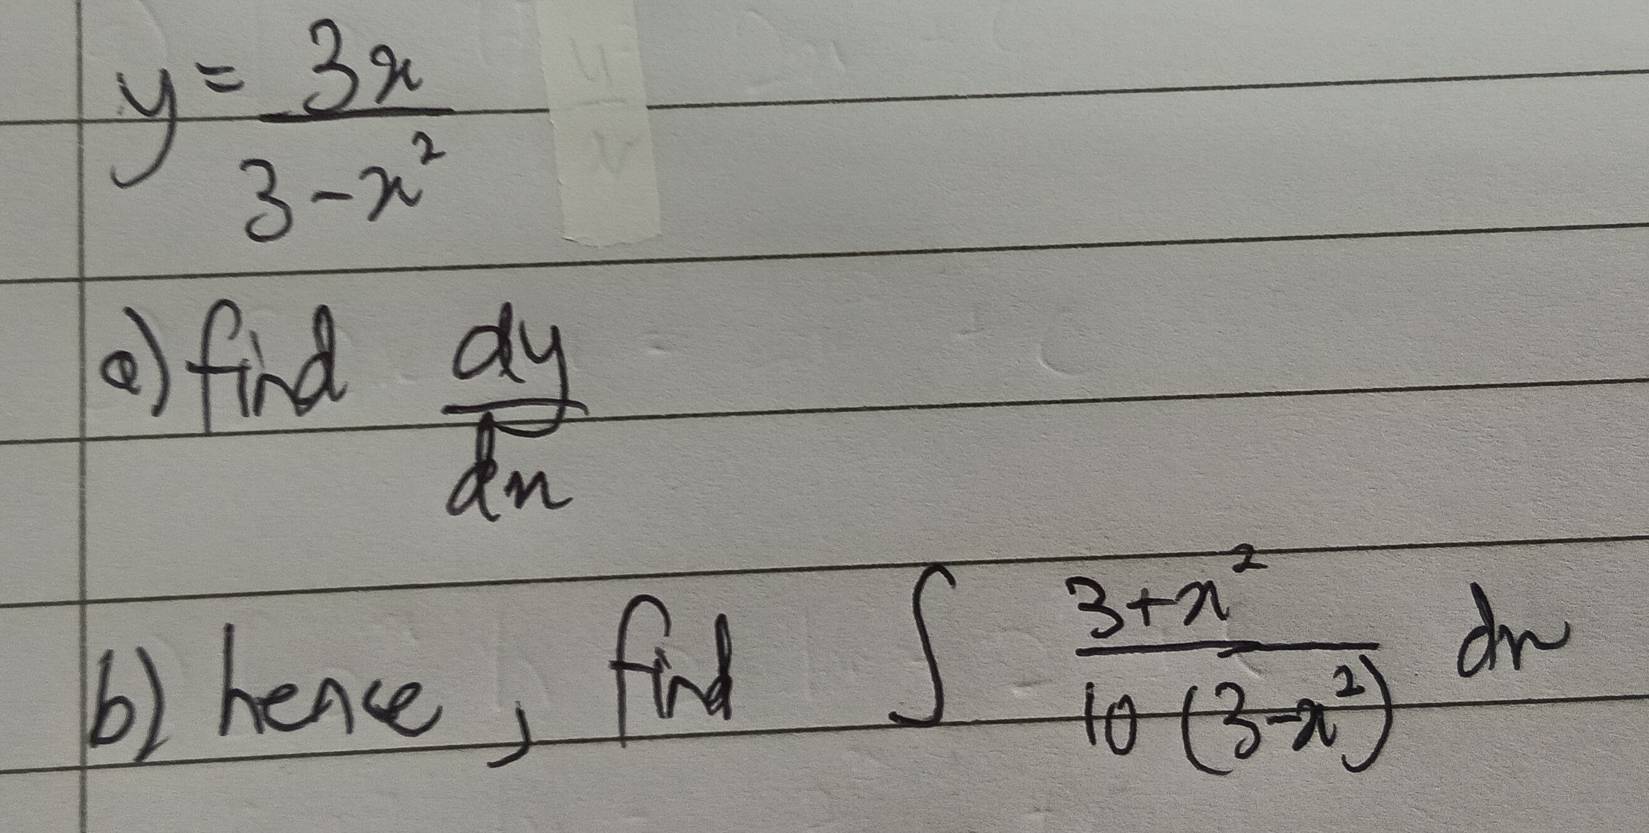 y = 3x / 3 - x²
a) find dy/dx
b) hence, find ∫ 3 + x² / 10 (3 - x²) dx